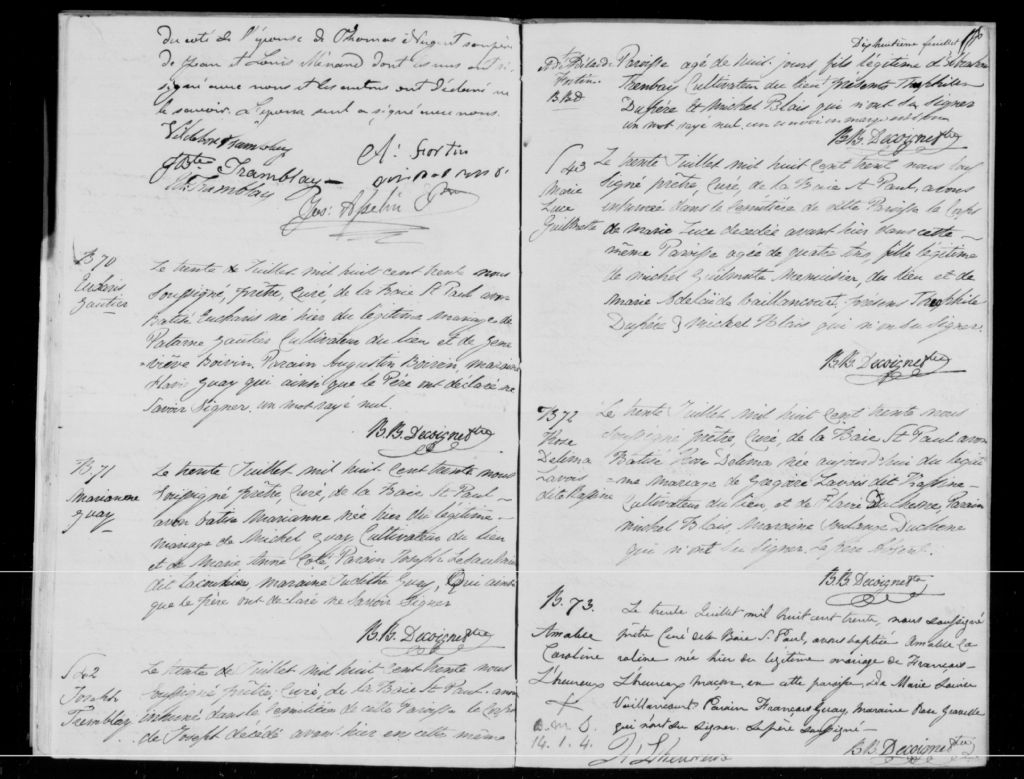 du coté de l'épouse de Thomas
de Jean et Louis Ménard dont
signé avec nous et les autres ont déclaré ne
le savoir. L'épouse a signé avec nous.
Tramblay
Jos: Asselin
B 70
Gautier
Le trente de Juillet mil huit cent trente nous
soussigné, prêtre, Curé, de la Baie St Paul avons
Batisé né hier du légitime mariage de
Gautier Cultivateur du lieu et de Gene
-viève Boivin. Parain Augustin Boivin, maraine
Guay qui ainsi que le Père ont déclaré ne
savoir signer. un mot rayé nul.
B.B. Decoigne ptre
B. 71
Marianne
Guay
Le trente Juillet mil huit cent trente nous
soussigné Prêtre, Curé, de la Baie St Paul
avons batisé Marianne née hier du légitime
mariage de Michel Guay Cultivateur du lieu
et de Marie Anne Coté, Parain Joseph
dit maraine Judithe Guay, Qui ainsi
que le père ont déclaré ne savoir signer
B.B. Decoigne ptre
S 42
Joseph
Tremblay
Le trente de Juillet mil huit cent trente nous
soussigné Prêtre, Curé, de la Baie St Paul avons
inhumé dans le Cimetière de cette Paroisse le Corps
de Joseph décédé avant hier en cette même
Dixhuitième feuillet
Paroisse agé de huit jours fils légitime d'
Trembay Cultivateur du lieu présents Théophile
Dufére et Michel Blais qui n'ont su signer
un mot rayé nul, un renvoi en marge
B.B. Decoigne ptre
S 43
Marie
Luce
Le trente Juillet mil huit cent trente nous sous
signé prêtre, Curé, de la Baie St Paul, avons
inhumée dans le Cimétière de cette Paroisse le Corps
de Marie Luce decedée avant hier dans cette
même Paroisse agée de quatre ans fille légitime
de Michel menuisier, du lieu et de
Marie Adelaïde Vaillancour, Présens Théophile
Dufére & Michel Blais qui n'ont su signer.
B.B. Decoigne ptre
B 72
Rose
Delima
Lavois
Le trente Juillet mil huit cent trente nous
soussigné prêtre, Curé, de la Baie St Paul avons
Batisé Rose Delima née aujourd'hui du légiti
-me mariage de Lavois dit
Cultivateur du lieu, et de Duchene, Parain
Michel Blais, Maraine Duchene
qui n'ont su signer. Le père absent.
B.B. Decoigne ptre
B. 73.
Amable
Caroline
L'heureux
14. 1. 4.
Le trente Juillet mil huit cent trente, nous soussigné
prêtre Curé de la Baie St Paul, avons baptisé Amable Ca
roline née hier du légitime mariage de François
L'heureux maçon, en cette paroisse, & de Marie
Vaillancourt Parain François Guay, Maraine Rose
qui n'ont su signer. Le père soussigné
L'heureux
B.B. Decoigne ptre